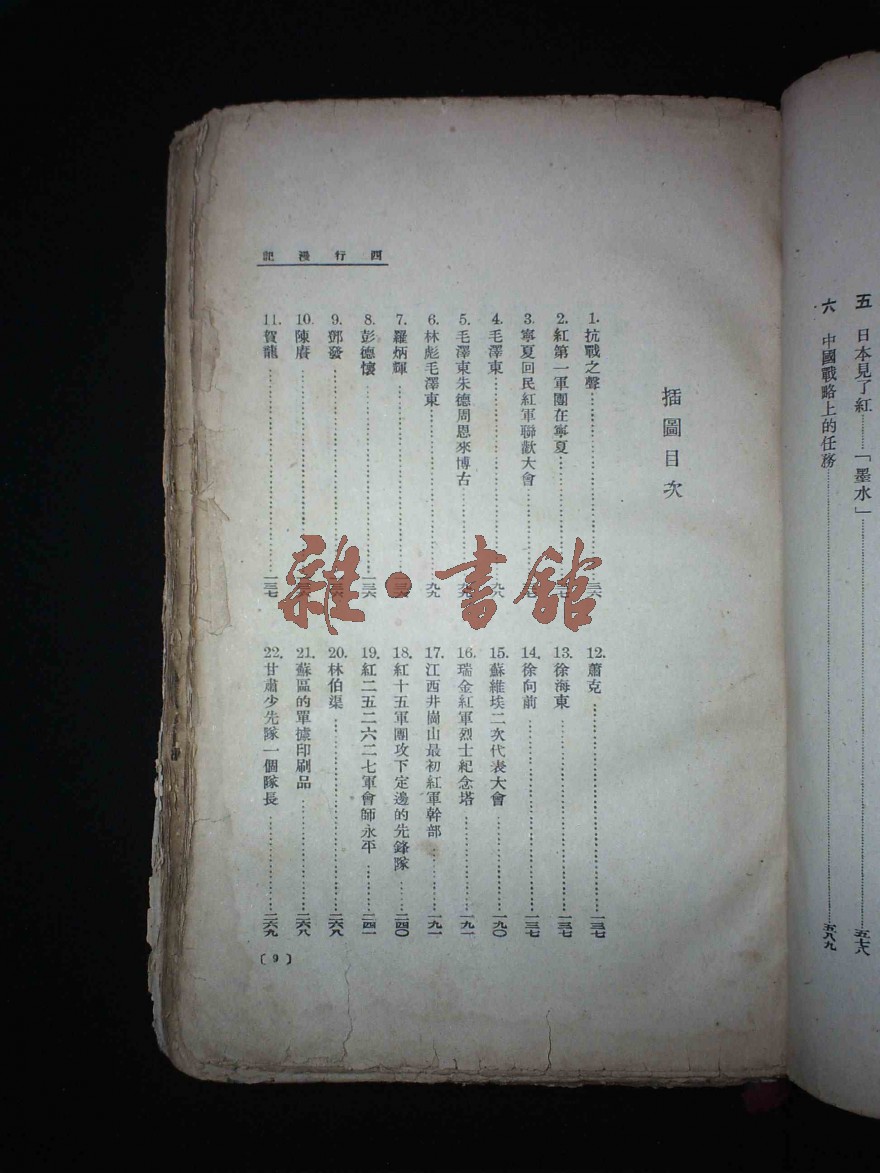 五　日本見了紅……「墨水」……五七八
六　中國戰略上的任務……五八九
西行漫記
插圖目次
1. 抗戰之聲……
2. 紅第一軍團在寧夏……
3. 寧夏回民紅軍聯歡大會……
4. 毛澤東……九八
5. 毛澤東朱德周恩來博古……九九
6. 林彪毛澤東……九九
7. 羅炳輝……
8. 彭德懷……一三六
9. 鄧發……
10. 陳賡……
11. 賀龍……一三七
12. 蕭克……一三七
13. 徐海東……一三七
14. 徐向前……一三七
15. 蘇維埃二次代表大會……一九〇
16. 瑞金紅軍烈士紀念塔……一九一
17. 江西井崗山最初紅軍幹部……一九一
18. 紅十五軍團攻下定邊的先鋒隊……二四〇
19. 紅二五二六二七軍會師永平……二四一
20. 林伯渠……二六八
21. 蘇區的單據印刷品……二六八
22. 甘肅少先隊一個隊長……二六九
〔9〕
雜·書館